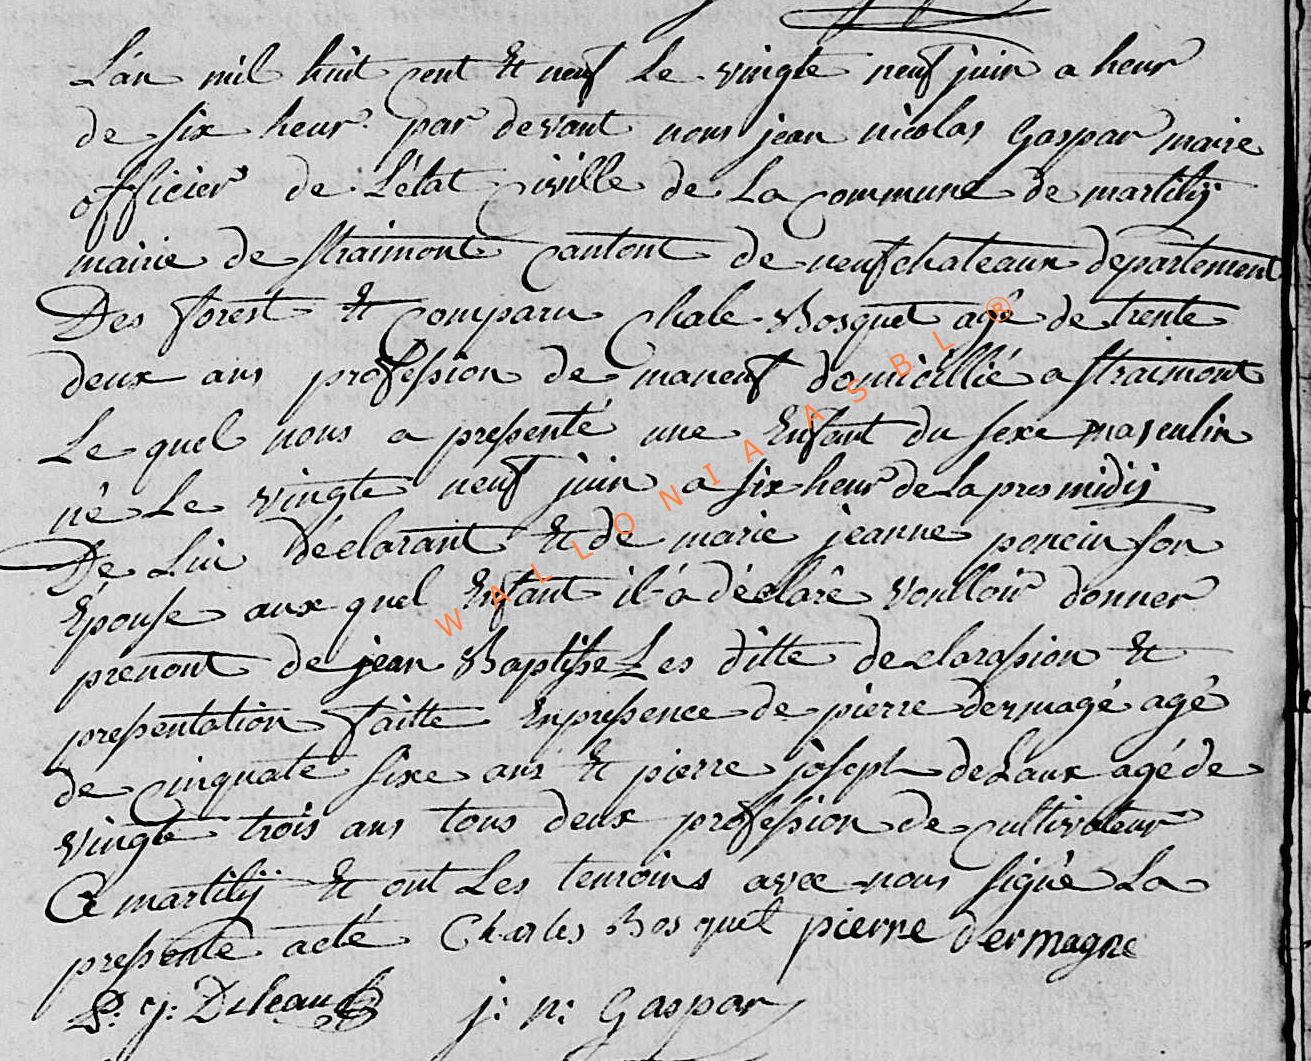 L'an mil huit cent Et neuf Le vingte neuf juin a heur
de six heur par devant nous jean nicolas Gaspar maire
officier de L'état civille de La commune de martilÿ
mairie de straimont cantont de neufchateaux departement
Des forest Et comparu Chale Bosquet agé de trente
deux ans profession de maneuf domicillié a straimont
Le quel nous a presenté une Enfant du sexe masculin
né Le vingte neuf juin a six heur de La pres midij
De Lui déclarant Et de marie jeanne poncin son
Épouse aux quel Enfant il a déclaré voulloir donner
prenont de jean Baptisse Les ditte declarasion Et
presentation faitte En presence de pierre dermagé agé
de cinquate sixe ans Et pierre joseph deLaux agé de
vingte trois ans tous deux profession de cultivateur
a martilÿ Et ont Les temoins avec nous signé La
presente acte Charles Bosquet pierre dermagne
P: j: Deleau j: n: Gaspar
WALLONIA ASBL ®